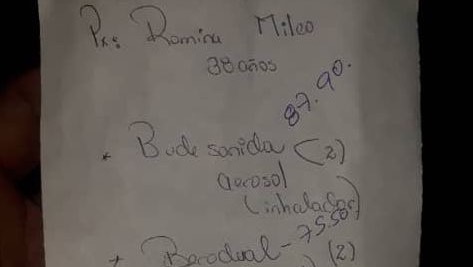 Px: Romina Mileo
38 años
87.90.
* Budesonida (2)
aerosol
(inhalador)
* Berodual - 75.50 (2)